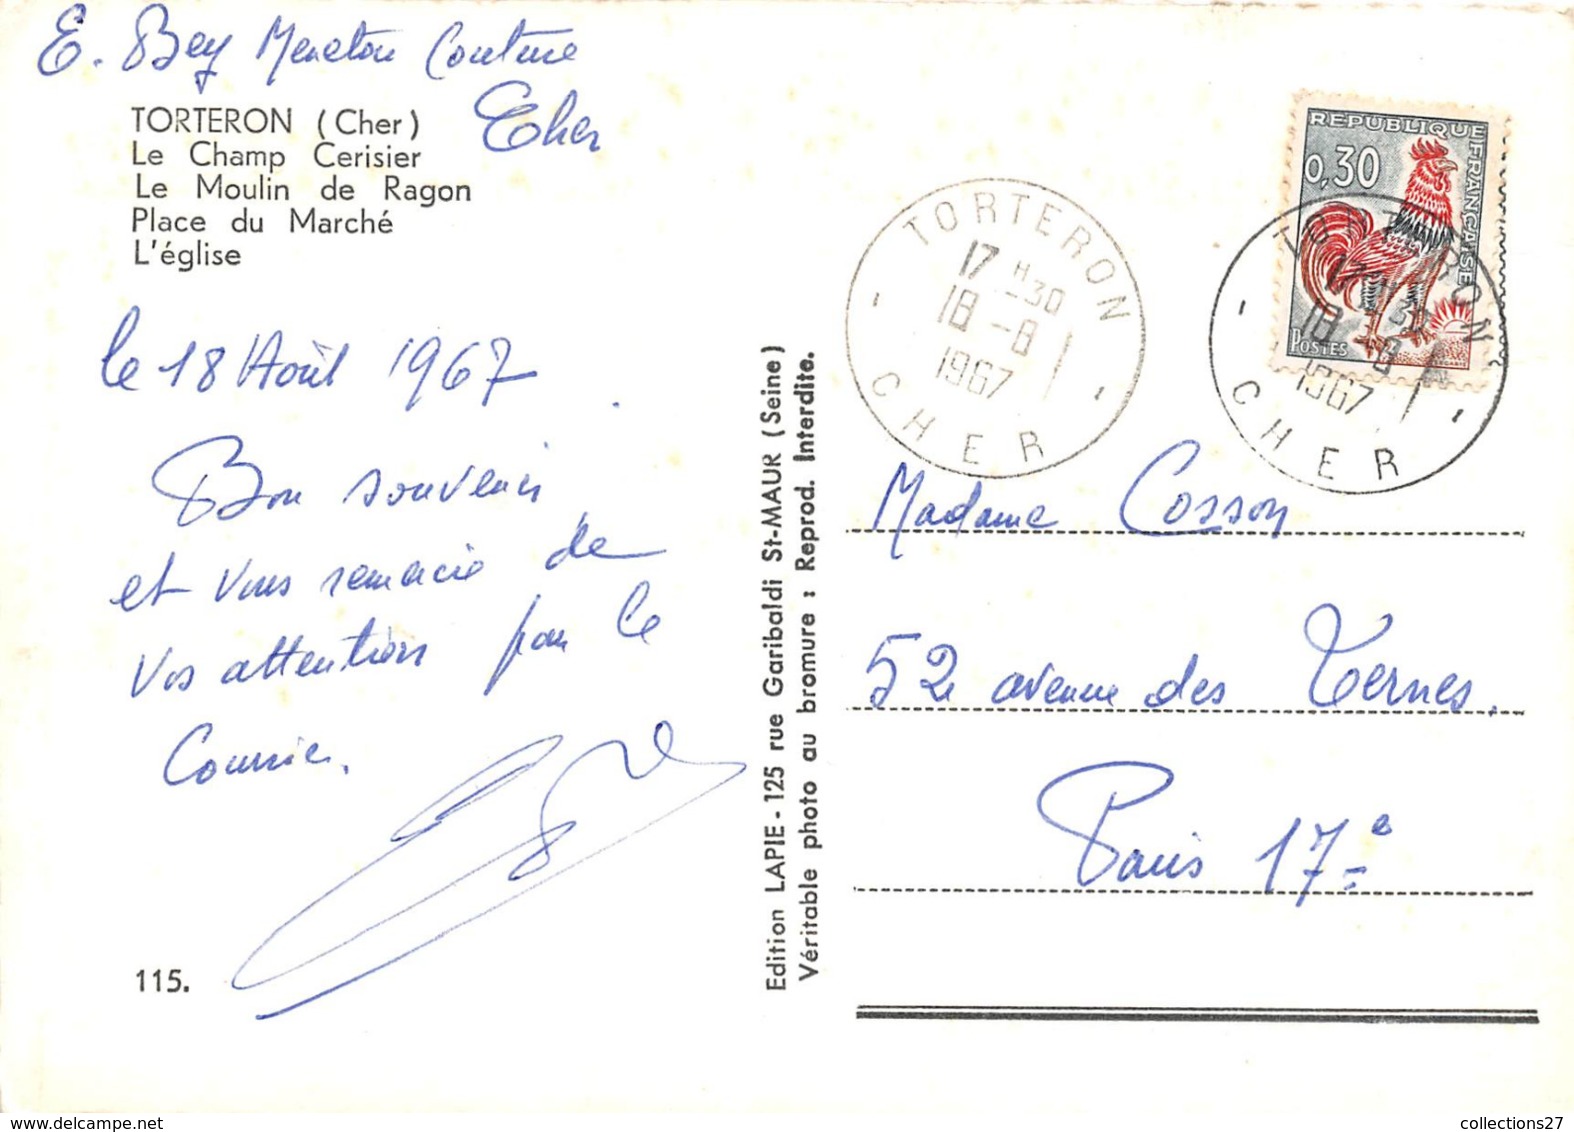 E. Bey Menetou Couture
Cher
TORTERON (Cher)
Le Champ Cerisier
Le Moulin de Ragon
Place du Marché
L'église
le 18 Août 1967
Bon souvenir
et vous remercie de
vos attentions pour le
Courrier.
115.
Edition LAPIE - 125 rue Garibaldi St-MAUR (Seine)
Véritable photo au bromure : Reprod. Interdite.
TORTERON
17 H -30
18 -8
1967
CHER
REPUBLIQUE FRANÇAISE
0,30
POSTES
TORTERON
17 H -30
18 -8
1967
CHER
Madame Cosson
52 avenue des Ternes.
Paris 17e
www.delcampe.net
collections27